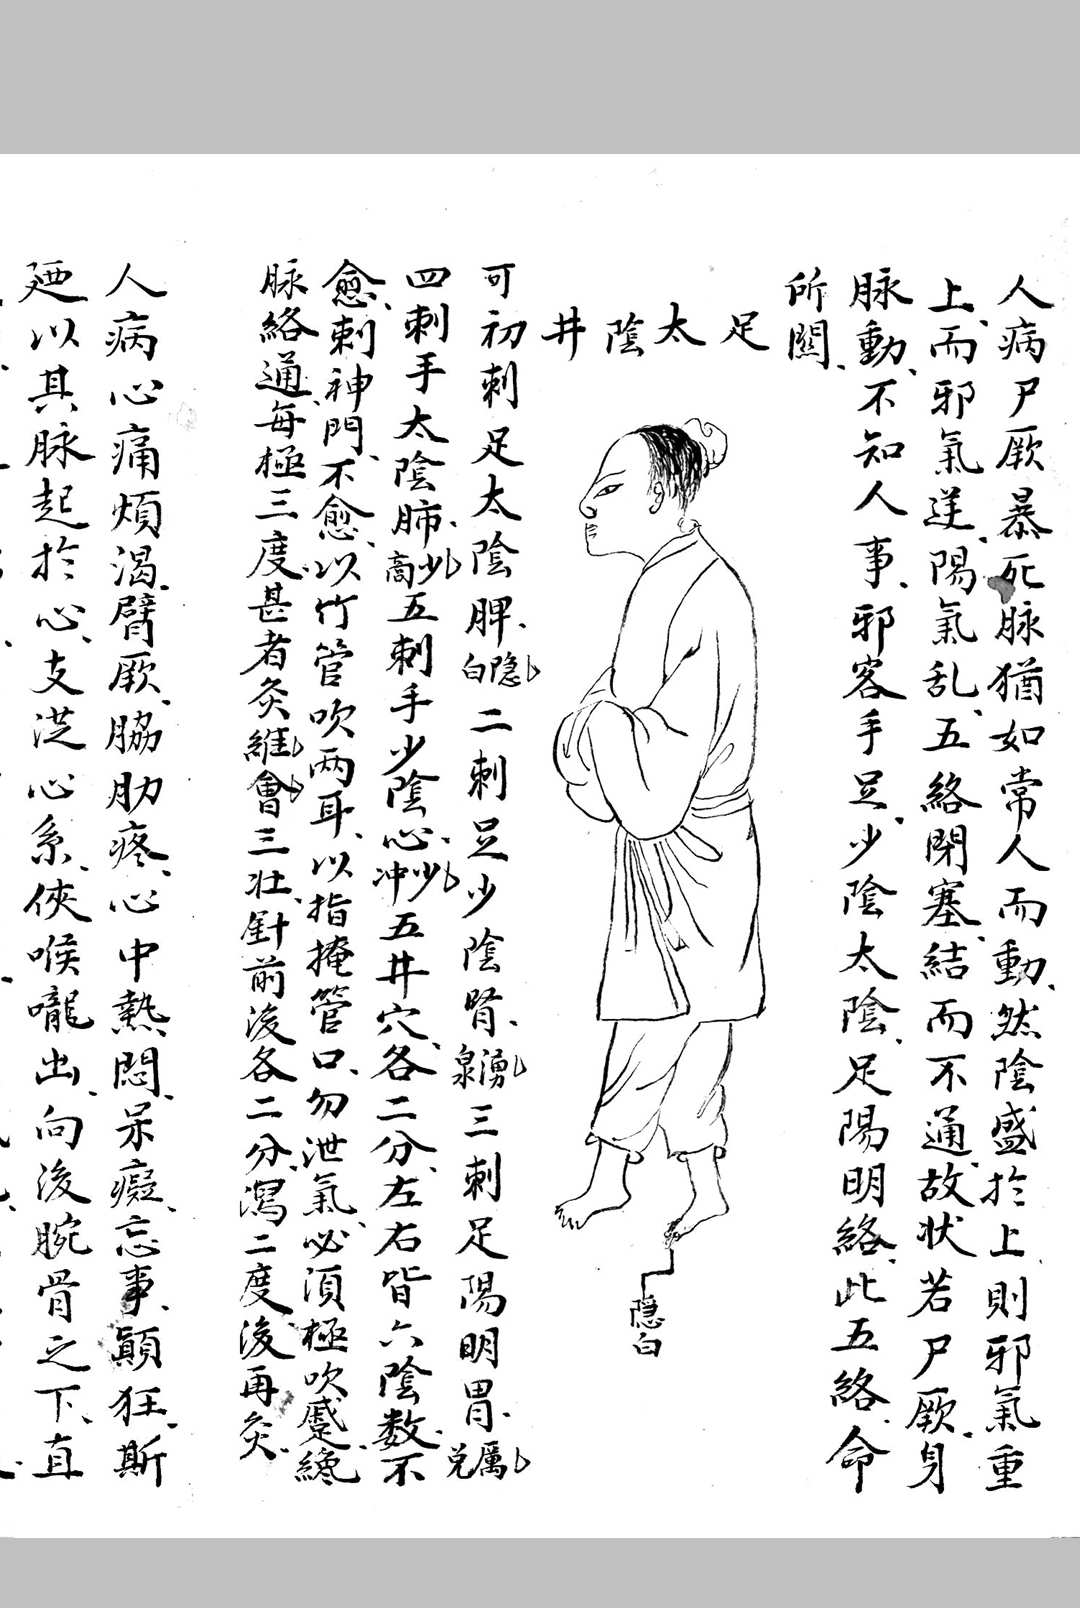 人病尸厥暴死脉猶如常人而動然陰盛於上則邪氣重
上而邪氣逆陽氣乱五絡閉塞結而不通故状若尸厥身
脉動不知人事邪客手足少陰太陰足陽明絡此五絡命
所關
足太陰井
隐白
可初刺足太陰脾隐白二刺足少陰腎湧泉三刺足陽明胃厲兑
四刺手太陰肺少商五刺手少陰心少冲五井穴各二分左右皆六陰数不
愈刺神門不愈以竹管吹两耳以指掩管口勿泄氣必須極吹蹙纔
脉絡通每極三度甚者灸維會三壮針前後各二分瀉二度後再灸
人病心痛煩渴臂厥脇肋疼心中熱悶呆癡忘事顛狂斯
廼以其脉起於心支従心系俠喉嚨出向後腕骨之下直